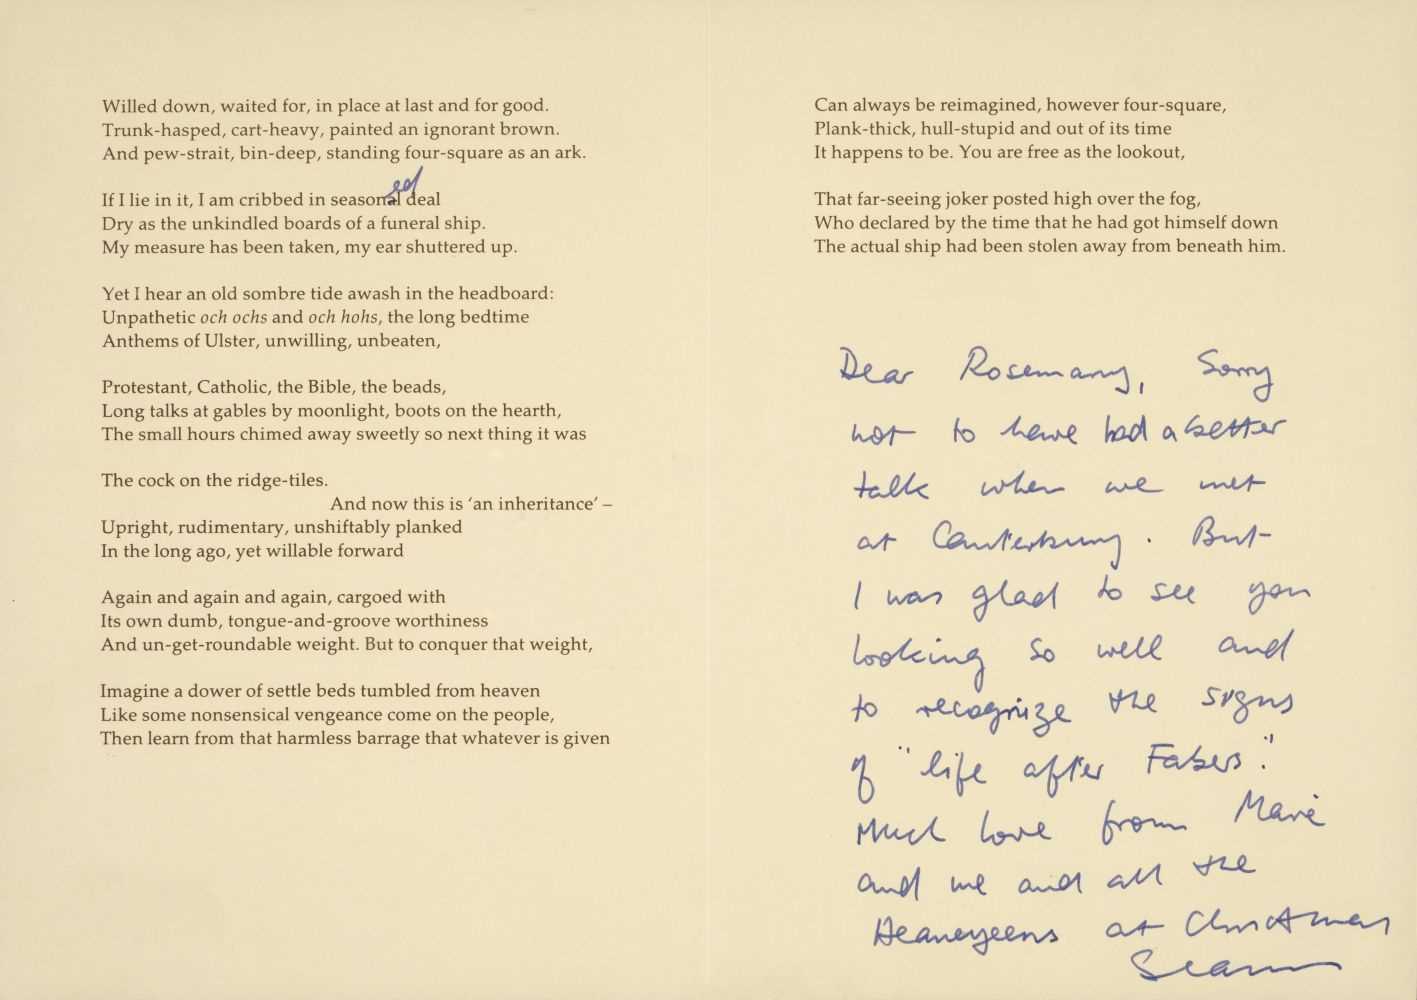 Willed down, waited for, in place at last and for good.
Trunk-hasped, cart-heavy, painted an ignorant brown.
And pew-strait, bin-deep, standing four-square as an ark.
ed
If I lie in it, I am cribbed in seasonal deal
Dry as the unkindled boards of a funeral ship.
My measure has been taken, my ear shuttered up.
Yet I hear an old sombre tide awash in the headboard:
Unpathetic och ochs and och hohs, the long bedtime
Anthems of Ulster, unwilling, unbeaten,
Protestant, Catholic, the Bible, the beads,
Long talks at gables by moonlight, boots on the hearth,
The small hours chimed away sweetly so next thing it was
The cock on the ridge-tiles.
And now this is ‘an inheritance’ –
Upright, rudimentary, unshiftably planked
In the long ago, yet willable forward
Again and again and again, cargoed with
Its own dumb, tongue-and-groove worthiness
And un-get-roundable weight. But to conquer that weight,
Imagine a dower of settle beds tumbled from heaven
Like some nonsensical vengeance come on the people,
Then learn from that harmless barrage that whatever is given
Can always be reimagined, however four-square,
Plank-thick, hull-stupid and out of its time
It happens to be. You are free as the lookout,
That far-seeing joker posted high over the fog,
Who declared by the time that he had got himself down
The actual ship had been stolen away from beneath him.
Dear Rosemary, Sorry
not to have had a better
talk when we met
at Canterbury. But
I was glad to see you
looking so well and
to recognize the signs
of "life after Fabers".
Much love from Marie
and me and all the
Heaneyeens at Christmas
Seamus